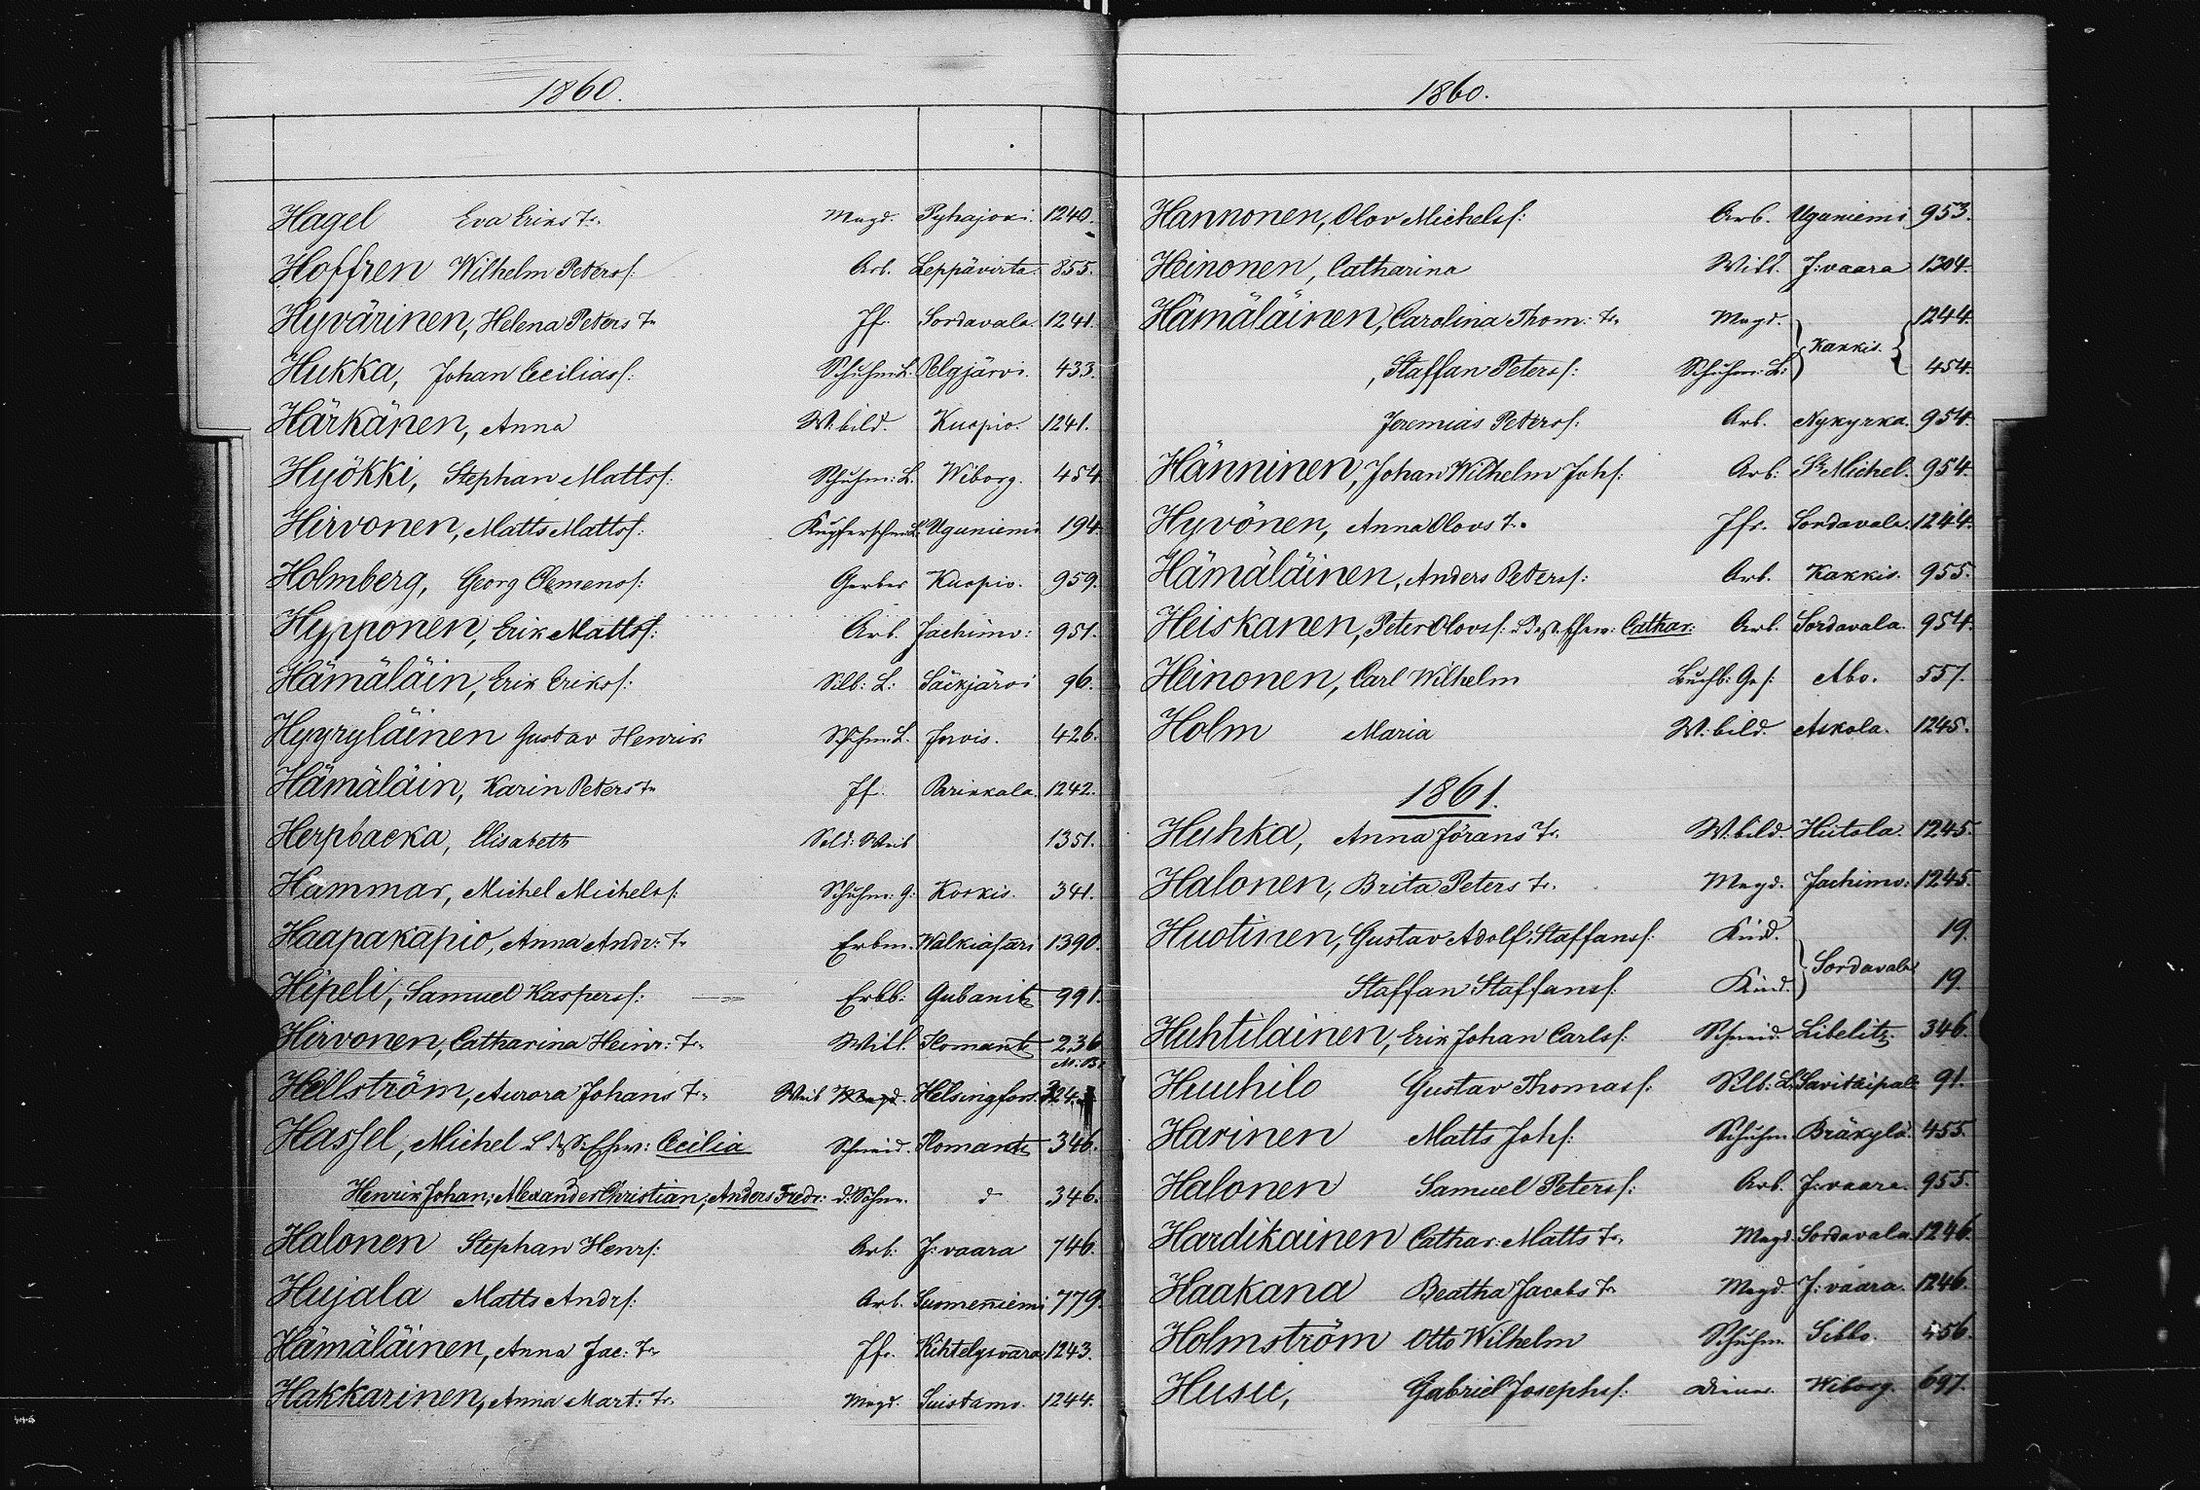 1860.
Hagel Eva Eriks Tr. Magd. Pyhajoki. 1240.
Hoffren Wilhelm Peters s: Arb. Leppävirta. 855.
Hyvärinen, Helena Peters Tr Jfr. Sordavala. 1241.
Hukka, Johan Cecilias s: Schuhm: L. Pelgjärvi. 433.
Härkänen, Anna W. bild. Kuopio. 1241.
Hyökki, Stephan Matts s: Schuhm: L. Wiborg. 454
Hirvonen, Matts Matts s: Kupferschm: L. Uguniemi 194.
Holmberg, Georg Clemens s: Gerber Kuopio. 959.
Hypponen, Erik Matts s: Arb. Jachimv: 951.
Hämäläin, Erik Eriks s: Silb: L: Säkjärvi 96.
Hyyryläinen Gustav Henrik Schuhm. L. Jorvis. 426.
Hämäläin, Karin Peters Tr Jf. Parikkala. 1242.
Herpbacka, Elisabeth Sold: Weib 1351.
Hammar, Michel Michels s: Schuhm: G: Korkis. 341.
Haapakapio, Anna Andr: Tr Erbm. Walkiasari 1390.
Hipeli, Samuel Kaspers s: Erbb: Gubanitz 991.
Hirvonen, Catharina Heinr: Tr. Witt. Ilomants 236
Hellström, Aurora Johans Tr. Weib Magd. Helsingfors. 324.
Hassel, Michel L. d. S: Ehw: Cecilia Schneid. Ilomants 346.
Henrik Johan; Alexander Christian; Anders Fredr: d: Söhne. d 346.
Halonen Stephan Henr s: Arb: J: vaara 746.
Hujala Matts Andr s: Arb. Suomenniemi 779.
Hämäläinen, Anna Jac: Tr Jfr. Kihtelysvara 1243.
Hakkarinen, Anna Mart: Tr. Magd. Suistamo. 1244.
1860.
Hannonen, Olov Michels s: Arb. Uguniemi 953.
Heinonen, Catharina Witt. J: vaara 1304.
Hämäläinen, Carolina Thom: Tr. Magd. Kakkis. 1244.
, Staffan Peters s: Schuhm: L: 454.
Jeremias Peters s: Arb. Nykyrka. 954.
Hänninen, Johan Wilhelm Joh s: Arb. St Michel. 954.
Hyvönen, Anna Olovs Tr. Jfr. Sordavala. 1244.
Hämäläinen, Anders Peters s: Arb. Kakkis. 955.
Heiskanen, Peter Olovs s: Cathar: Arb. Sordavala. 954.
Heinonen, Carl Wilhelm Buchb: Ges: Abo. 557.
Holm Maria W. bild. Askola. 1245.
1861.
Huhka, Anna Jörans Tr. W. bild. Hiitola. 1245.
Halonen, Brita Peters Tr. Magd. Jachimv: 1245.
Huotinen, Gustav Adolf Staffans s: Kind. Sordavala 19.
Staffan Staffans s: Kind. 19.
Huhtilainen, Erik Johan Carls s: Schneid. Libelitz. 346.
Huuhilo Gustav Thomas s: Silb: L. Savitaipale 91.
Harinen Matts Joh s: Schuhm. Bräkylä. 455.
Halonen Samuel Peters s: Arb. J: vaara. 955.
Hardikainen Cathar: Matts Tr. Magd. Sordavala. 1246.
Haakana Beatha Jacobs Tr Magd. J: vaara. 1246.
Holmström Otto Wilhelm Schuhm. Sibbo. 456.
Husu, Gabriel Josephs s: Diener. Wiborg. 697.